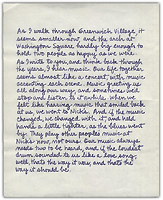 As I walk through Greenwich Village, it
seems smaller now, and the arch at
Washington Square, hardly big enough to
hold two people as happy as we were.
As I write to you and think back through
the years, when music and life together
seems almost like a concert with music
decorating each scene. Music greeting us
all along our way, and sometimes we'd
stop and listen to it awhile, when we
felt like hearing music that smiled back
at us, we went to Nicks. And if the music
changed, we changed with it, and held
hands a little tighter, as the blues went
by. They play other people's music at
Nicks now, not ours. Our music always
made two to be heard, and if the loudest
drum sounded to us like a love song,
well, that's the way it was, and that's the
way it should be.